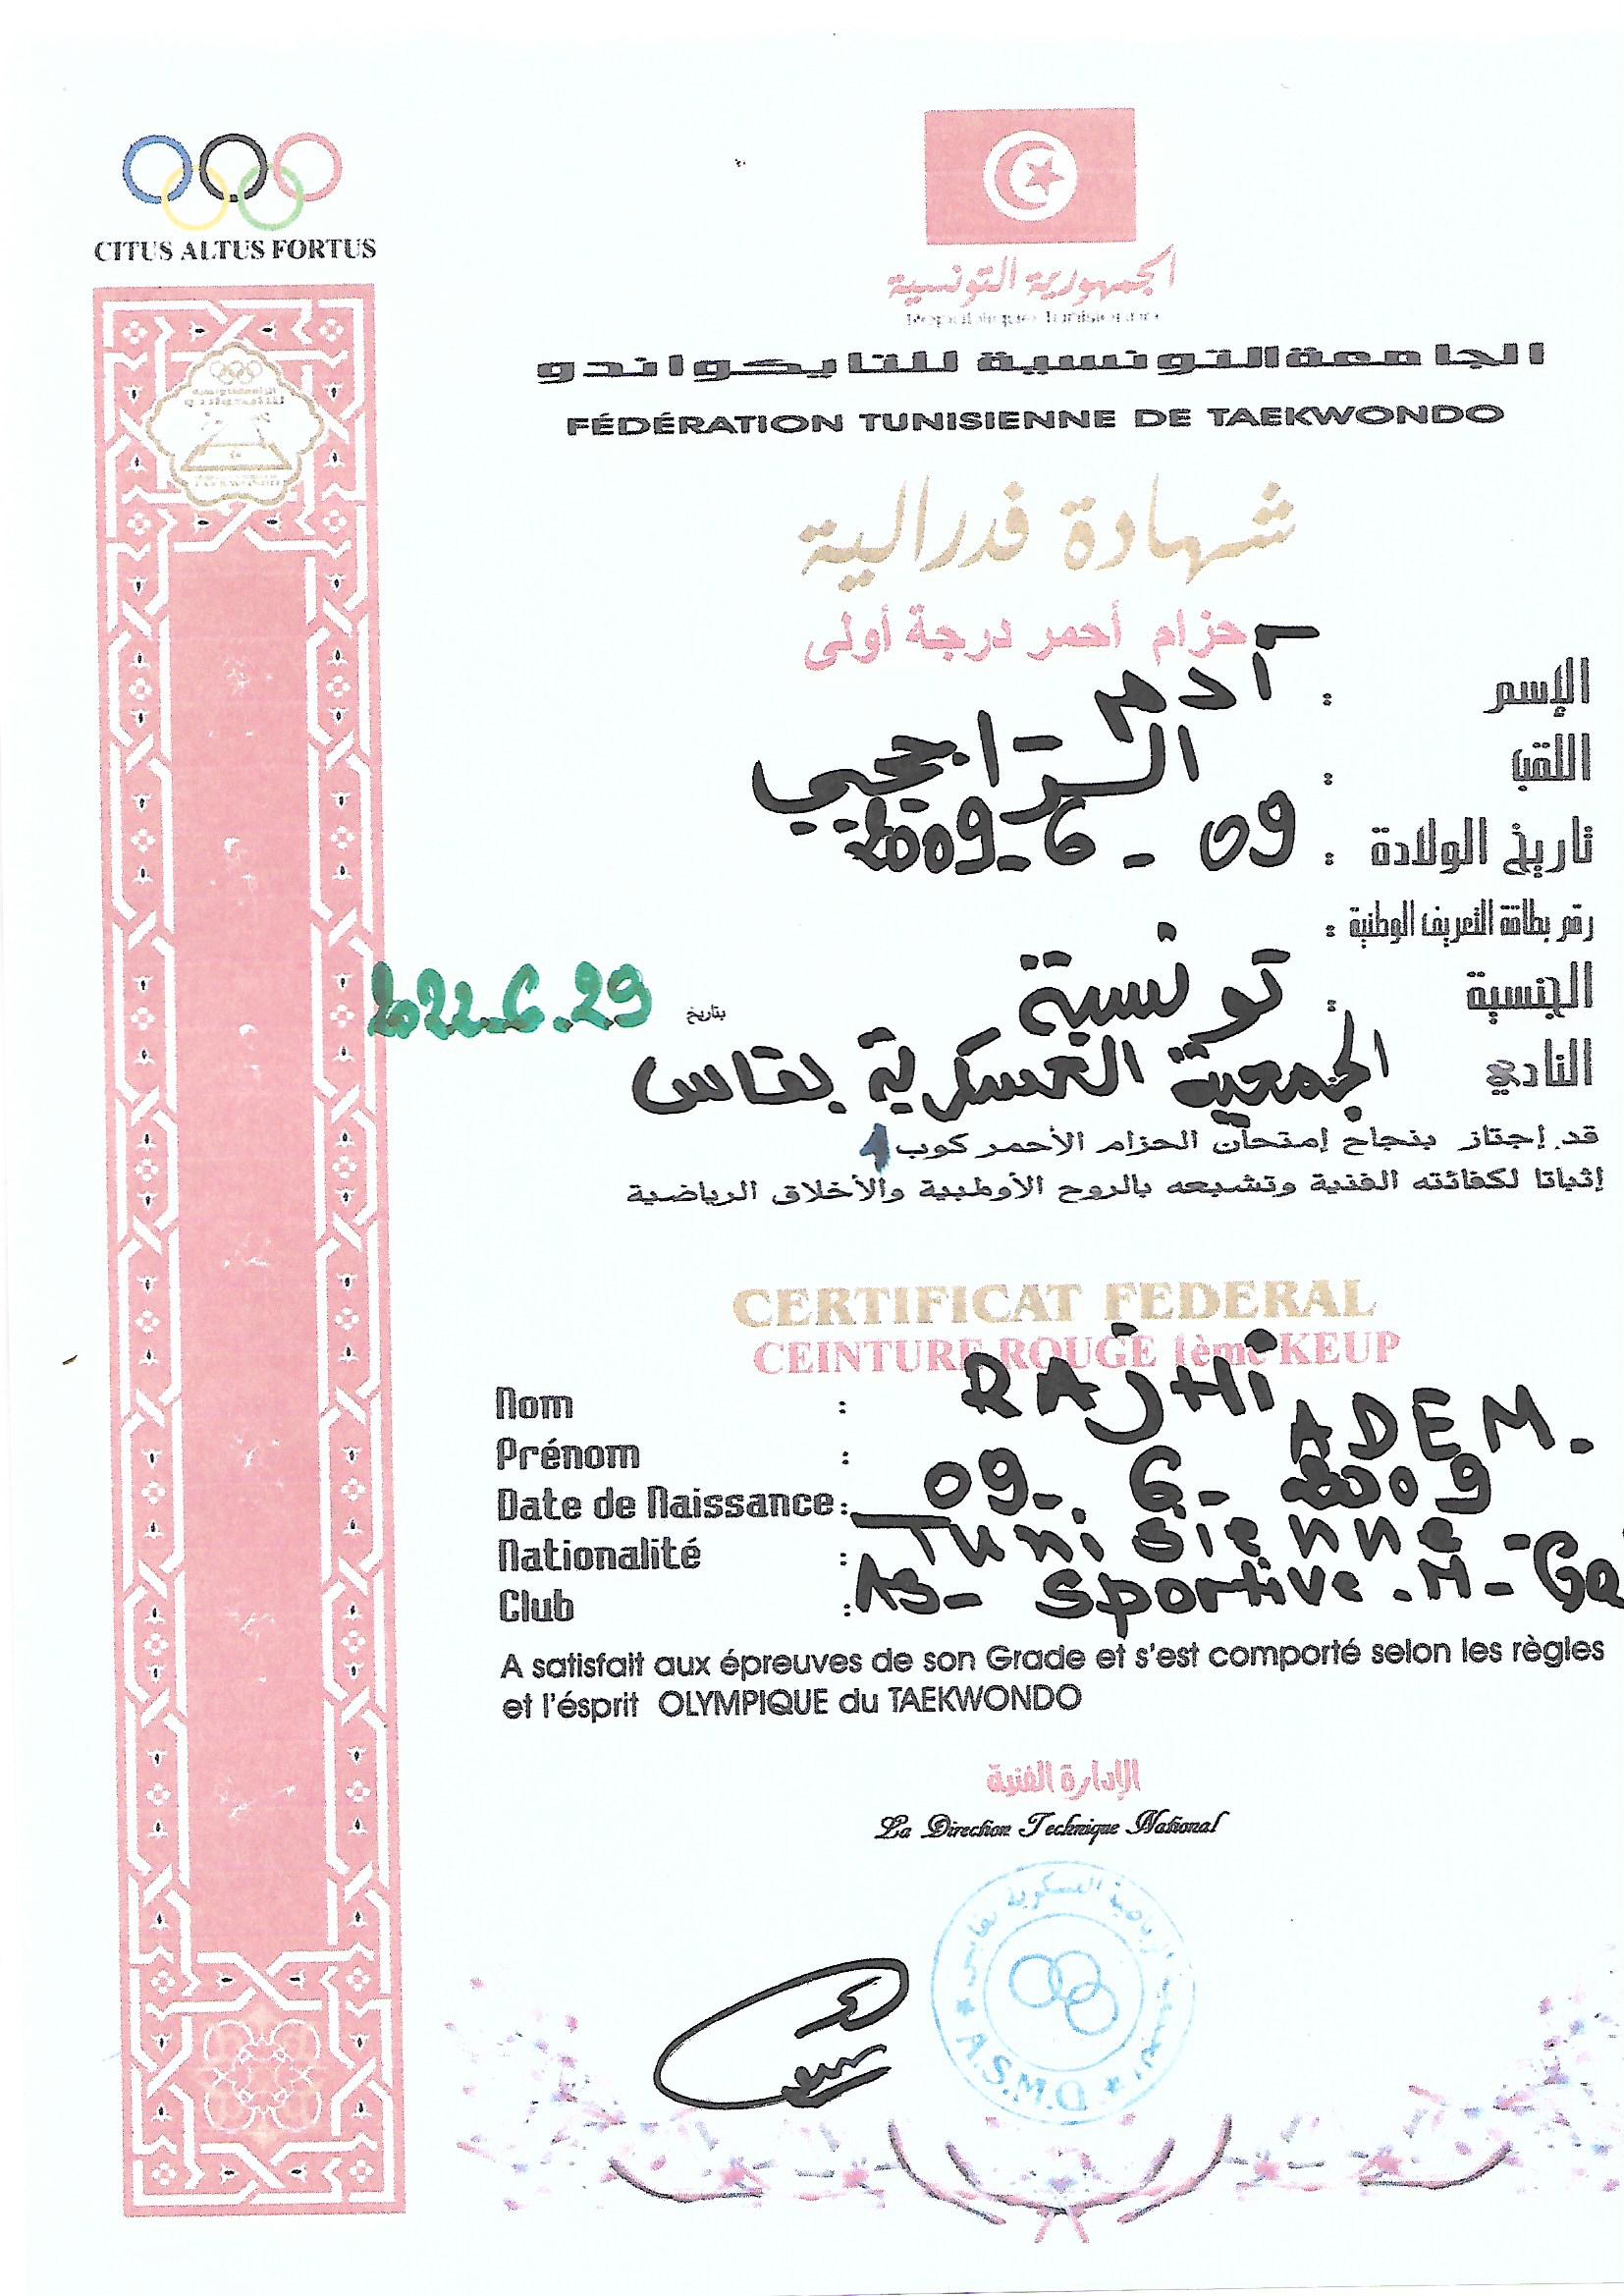 CITUS ALTUS FORTUS
الجمهورية التونسية
الجامعة التونسية للتايكواندو
FÉDÉRATION TUNISIENNE DE TAEKWONDO
شهادة فدرالية
حزام أحمر درجة أولى
الإسم : آدم
اللقب : الراجحي
تاريخ الولادة : 09 - 6 - 2009
رقم بطاقة التعريف الوطنية :
الجنسية : تونسية
بتاريخ 2022.6.29
النادي الجمعية العسكرية بقابس
قد إجتاز بنجاح إمتحان الحزام الأحمر كوب 1
إثباتا لكفائته الفنية وتشبعه بالروح الأولمبية والأخلاق الرياضية
CERTIFICAT FEDERAL
CEINTURE ROUGE 1ème KEUP
Nom : RAJHI
Prénom : ADEM.
Date de Naissance : 09-.6-2009
Nationalité : Tunisienne -
Club : AS- Sportive.M-Ga
A satisfait aux épreuves de son Grade et s'est comporté selon les règles
et l'ésprit OLYMPIQUE du TAEKWONDO
الإدارة الفنية
La Direction Technique National
العسكرية بقابس
A.S.M.D